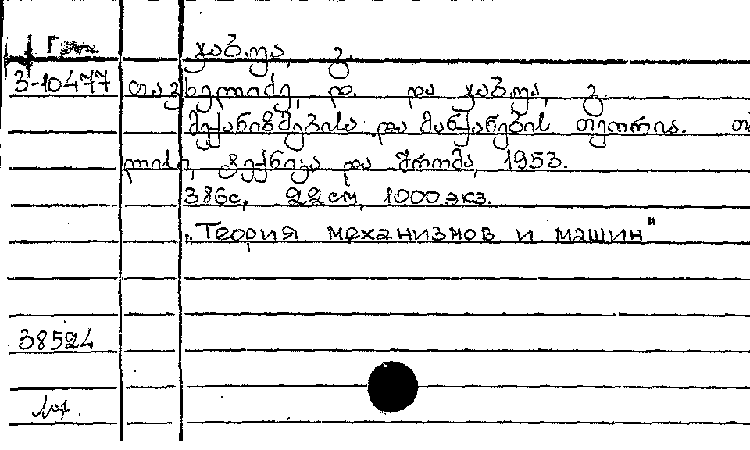 Груз
ჯაბუა, გ.
3-10477 თავხელიძე, დ. და ჯაბუა, გ.
მექანიზმებისა და მანქანების თეორია. თ
ლისი, ტექნიკა და შრომა, 1953.
386с, 22 см, 1000 экз.
„Теория механизмов и машин"
38524